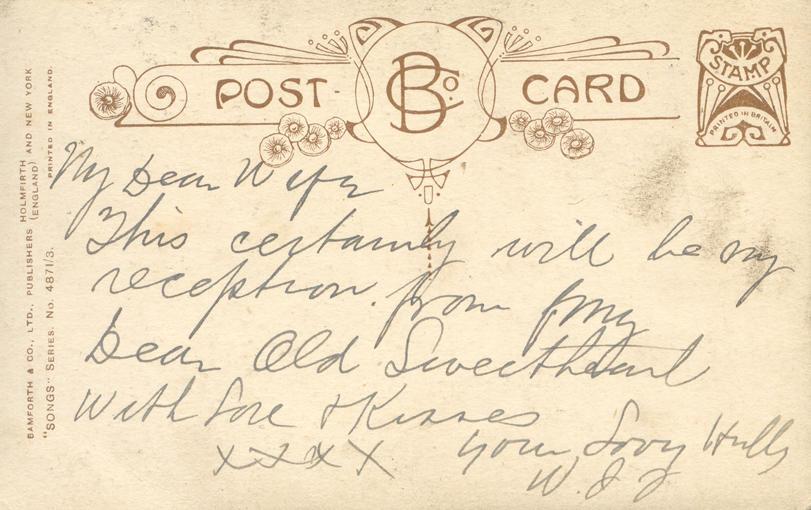 POST CARD
B Co.
STAMP
PRINTED IN BRITAIN
BAMFORTH & CO., LTD., PUBLISHERS (ENGLAND) HOLMFIRTH AND NEW YORK
"SONGS" SERIES. No. 4871/3.
PRINTED IN ENGLAND.
My Dear Wife
This certainly will be my
reception from my
Dear Old Sweetheart
With Love & Kisses
xxxx your
W.